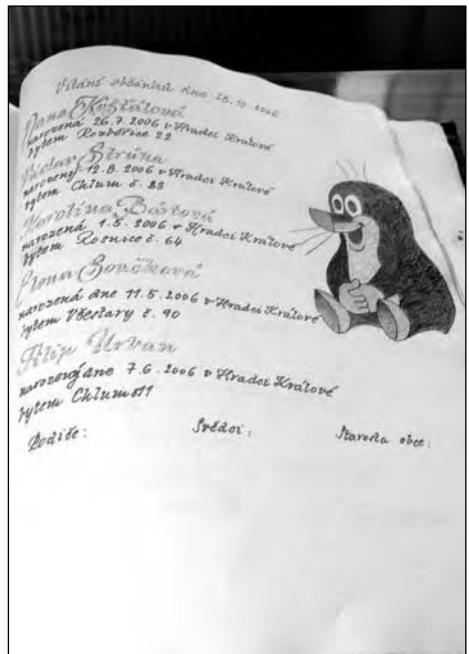 Vítání občánků dne 28.10.2006
Jana Křišťálová
narozená 26.7.2006 v Hradci Králové
bytem Rozběřice 22
Václav Strůna
narozený 12.8.2006 v Hradci Králové
bytem Chlum č. 88
Karolína Bártová
narozená 1.5.2006 v Hradci Králové
bytem Rosnice č. 64
Elena Součková
narozená dne 11.5.2006 v Hradci Králové
bytem Všestary č. 90
Filip Urban
narozený dne 7.6.2006 v Hradci Králové
bytem Chlum
Rodiče:
Svědci:
Starosta obce: